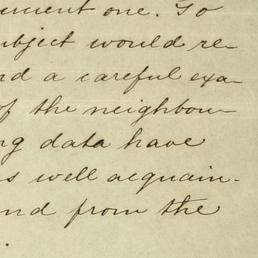 ument one. To
ubject would re-
nd a careful exa-
of the neighbou-
ng data have
s well acquain-
nd from the